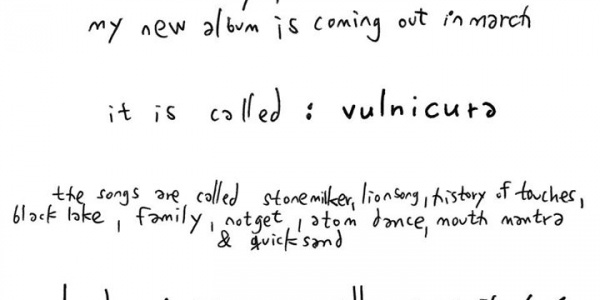 my new album is coming out in march
it is called : vulnicura
the songs are called stonemilker, lionsong, history of touches,
black lake, family, notget, atom dance, mouth mantra
& quicksand